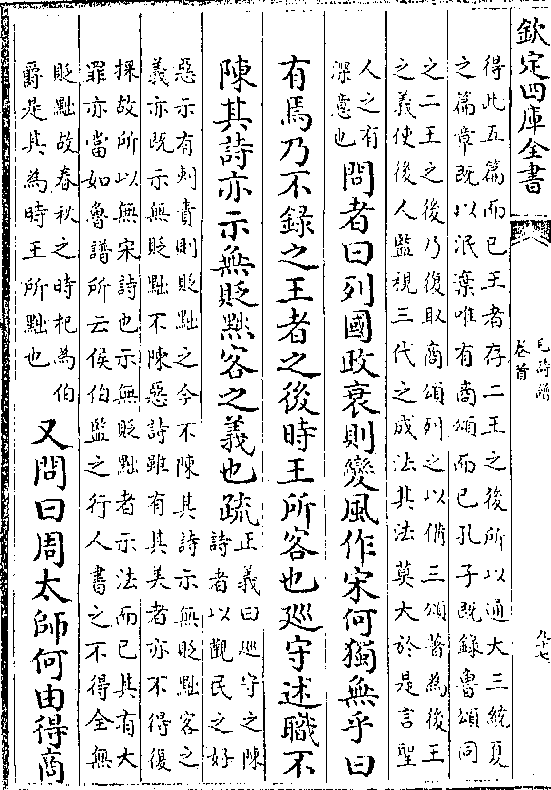 欽定四庫全書
毛詩譜
卷首
九十七
得此五篇而已王者存二王之後所以通大三統夏
之篇章既以泯棄唯有商頌而已孔子既錄魯頌同
之二王之後乃復取商頌列之以備三頌著為後王
之義使後人監視三代之成法其法莫大於是言聖
人之有
深意也
問者曰列國政衰則變風作宋何獨無乎曰
有焉乃不錄之王者之後時王所客也廵守述職不
陳其詩亦示無貶黜客之義也疏
正義曰廵守之陳
詩者以觀民之好
惡示有刺責則貶黜之今不陳其詩示無貶黜客之
義亦既示無貶黜不陳惡詩雖有其美者亦不得復
採故所以無宋詩也示無貶黜者示法而已其有大
罪亦當如魯譜所云侯伯監之行人書之不得全無
貶黜故春秋之時杞為伯
爵是其為時王所黜也
又問曰周太師何由得商